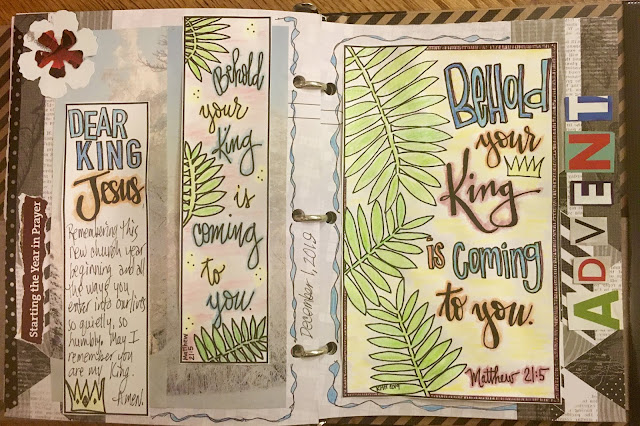 Starting the Year in Prayer
DEAR
KING
Jesus
Remembering this
new church year
beginning and all
the ways you
enter into our lives
so quietly, so
humbly. May I
remember you
are my King.
Amen.
Behold
your
King
is
coming
to
you.
Matthew
21:5
December 1, 2019
BEHOLD
your
King
is coming
to you.
Matthew 21:5
ADVENT